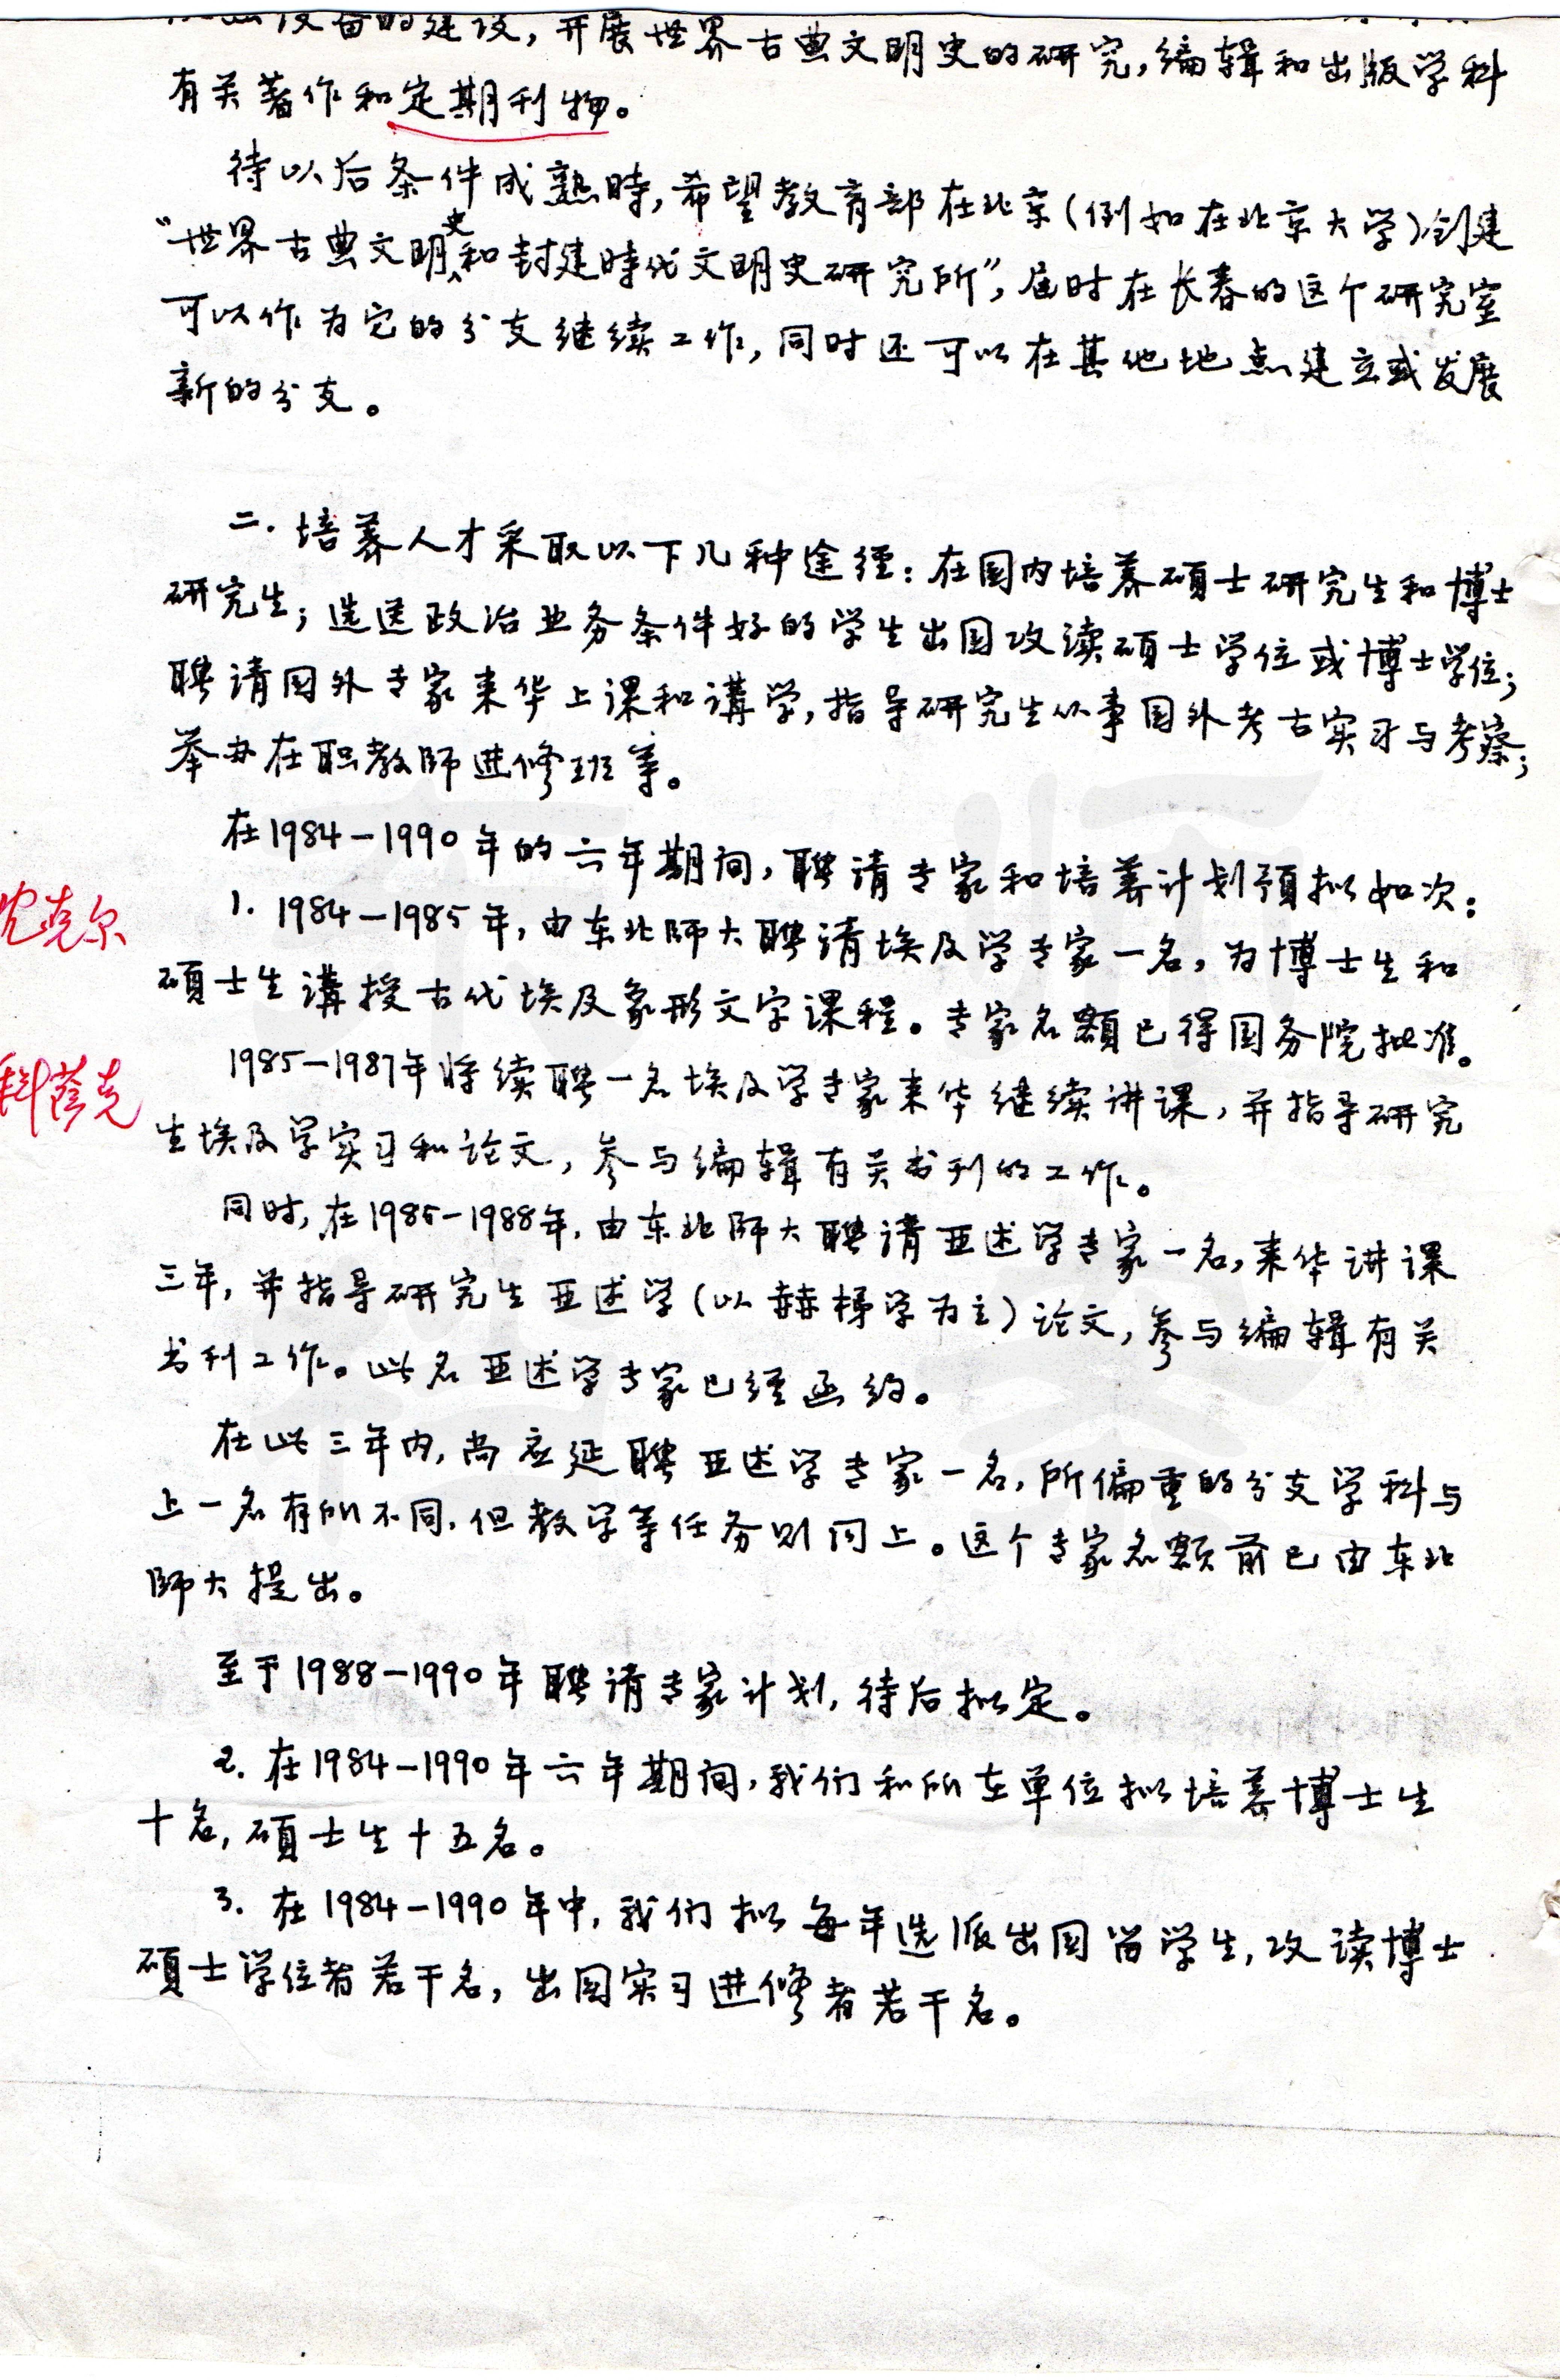 设备的建设，开展世界古典文明史的研究，编辑和出版学科
有关著作和定期刊物。
待以后条件成熟時，希望教育部在北京（例如在北京大学）创建
“世界古典文明史和封建時代文明史研究所”，届时在长春的这个研究室
可以作为它的分支继续工作，同时还可以在其他地点建立或发展
新的分支。
二．培养人才采取以下几种途径：在国内培养碩士研究生和博士
研究生；选送政治业务条件好的学生出国攻读碩士学位或博士学位；
聘请国外专家来华上课和講学，指导研究生从事国外考古实习与考察；
举办在职教師进修班等。
在1984－1990年的六年期间，聘请专家和培养计划預拟如次：
沈克尔
1. 1984－1985年，由东北師大聘请埃及学专家一名，为博士生和
碩士生講授古代埃及象形文字课程。专家名額已得国务院批准。
科薩克
1985－1987年将续聘一名埃及学专家来华继续讲课，并指导研究
生埃及学实习和论文，参与编辑有关书刊的工作。
同时，在1985－1988年，由东北師大聘请亚述学专家一名，来华讲课
三年，并指导研究生亚述学（以赫梯学为主）论文，参与编辑有关
书刊工作。此名亚述学专家已经函约。
在此三年内，尚应延聘亚述学专家一名，所偏重的分支学科与
上一名有所不同，但教学等任务则同上。这个专家名额前已由东北
師大提出。
至于1988－1990年聘请专家计划，待后拟定。
2. 在1984－1990年六年期间，我们和所在单位拟培养博士生
十名，碩士生十五名。
3. 在1984－1990年中，我们拟每年选派出国留学生，攻读博士
碩士学位者若干名，出国实习进修者若干名。